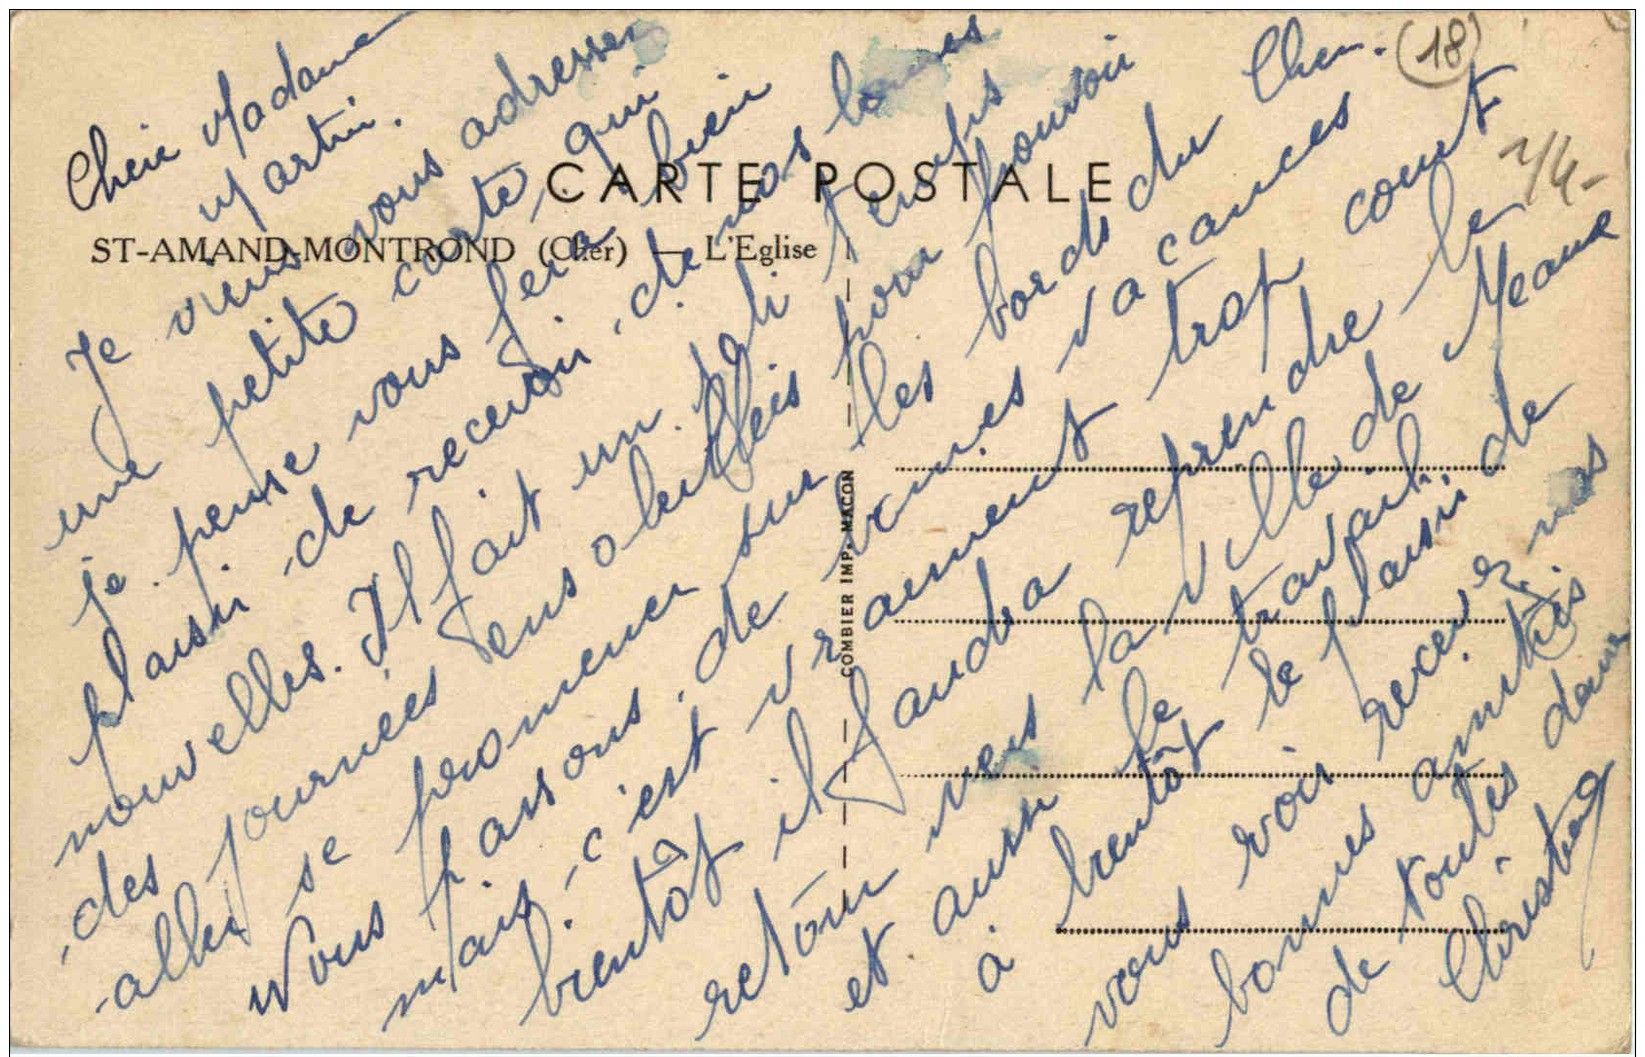 CARTE POSTALE
ST-AMAND-MONTROND (Cher) — L'Eglise
COMBIER IMP. MACON
(18)
Cherie Madame
Martin.
Je viens vous adresser
une petite carte, qui
je pense vous fera bien
plaisir de recevoir, de nos bonnes
nouvelles. Il fait un joli temps
des journées ensoleillés pour pouvoir
aller se promener sur les bords du Cher.
Nous passons de bonnes vacances
mais c'est vraiment trop court
bientôt il faudra reprendre le
retour vers la ville de Meaux
et aussi le travail.
à bientôt le plaisir de
vous voir recevez nos
bonnes amitiés.
de toutes deux